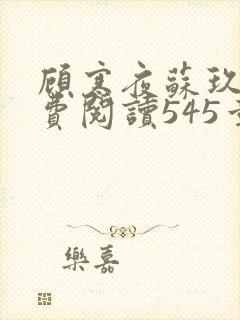 顾寒夜蘇玖
費閱讀545
樂嘉